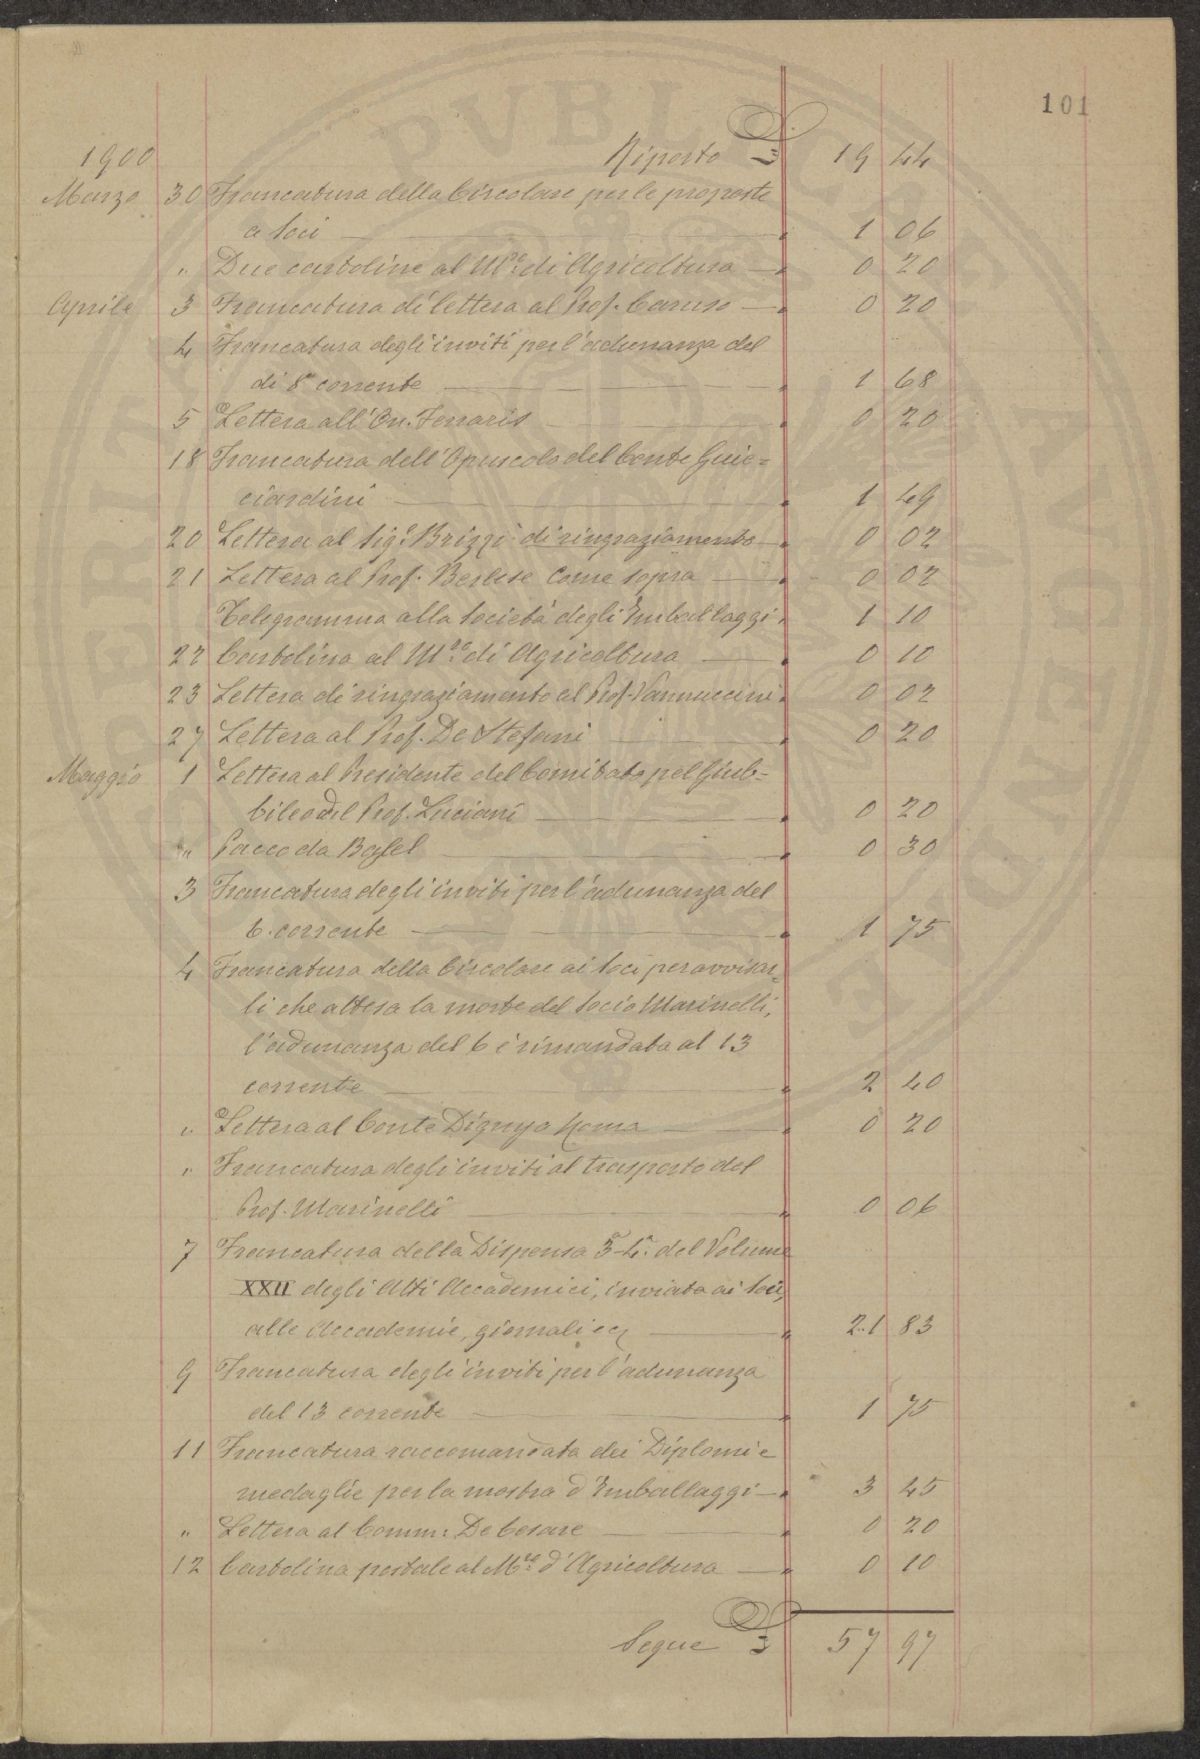 101
1900 Riporto £ 19 44
Marzo 30 Francatura della Circolare per le proposte
a Soci " 1 06
" Due cartoline al M.ro di Agricoltura " 0 20
Aprile 3 Francatura di lettera al Prof. Caruso " 0 20
4 Francatura degli inviti per l'adunanza del
di 8 corrente " 1 68
5 Lettera all'On. Ferraris " 0 20
18 Francatura dell'Opuscolo del Conte Guic=
ciardini " 1 49
20 Lettera al Sig.r Brizzi di ringraziamento " 0 02
21 Lettera al Prof. Berlese come sopra " 0 02
Telegramma alla Società degli Imballaggi " 1 10
22 Cartolina al M.ro di Agricoltura " 0 10
23 Lettera di ringraziamento al Prof. Vannuccini " 0 02
27 Lettera al Prof. De Stefani " 0 20
Maggio 1 Lettera al Presidente del Comitato pel Giub=
bileo del Prof. Luciani " 0 20
" Pacco da Basel " 0 30
3 Francatura degli inviti per l'adunanza del
6. corrente " 1 75
4 Francatura della Circolare ai Soci per avvisar=
li che attesa la morte del Socio Marinelli,
l'adunanza del 6 è rimandata al 13
corrente " 2 40
" Lettera al Conte Digny a Roma " 0 20
" Francatura degli inviti al trasporto del
Prof. Marinelli " 0 06
7 Francatura della Dispensa 3ª-4ª. del Volume
XXII degli Atti Accademici, inviata ai Soci,
alle Accademie, giornali ec. " 21 83
9 Francatura degli inviti per l'adunanza
del 13 corrente " 1 75
11 Francatura raccomandata dei Diplomi e
medaglie per la mostra d'Imballaggi " 3 45
" Lettera al Comm: De Cesare " 0 20
12 Cartolina postale al M.ro d'Agricoltura " 0 10
Segue £ 57 97